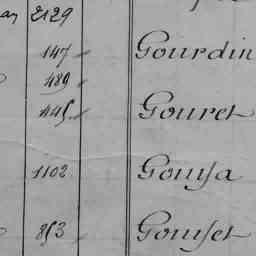 2129
147 Gourdin
489
445 Gouret
1102 Goussa
853 Gousset